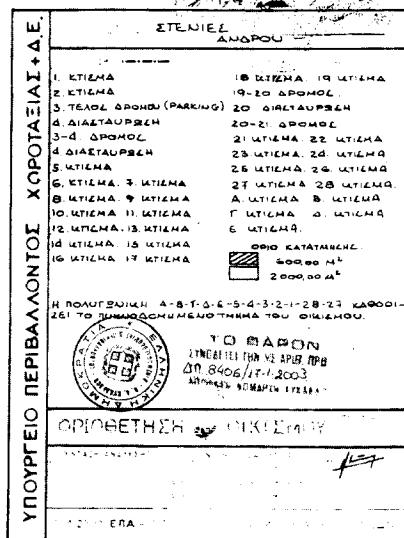 ΥΠΟΥΡΓΕΙΟ ΠΕΡΙΒΑΛΛΟΝΤΟΣ ΧΩΡΟΤΑΞΙΑΣ + Δ.Ε.
ΣΤΕΝΙΕΣ
ΑΝΔΡΟΥ
1. ΚΤΙΣΜΑ
2. ΚΤΙΣΜΑ
3. ΤΕΛΟΣ ΔΡΟΜΟΥ (PARKING)
3-4. ΔΡΟΜΟΣ
4. ΔΙΑΣΤΑΥΡΩΣΗ
5. ΚΤΙΣΜΑ
6. ΚΤΙΣΜΑ. 7. ΚΤΙΣΜΑ
8. ΚΤΙΣΜΑ. 9 ΚΤΙΣΜΑ
10. ΚΤΙΣΜΑ 11. ΚΤΙΣΜΑ
12. ΚΤΙΣΜΑ. 13. ΚΤΙΣΜΑ
14 ΚΤΙΣΜΑ. 15 ΚΤΙΣΜΑ
16 ΚΤΙΣΜΑ 17 ΚΤΙΣΜΑ
18 ΚΤΙΣΜΑ. 19 ΚΤΙΣΜΑ
19-20 ΔΡΟΜΟΣ.
20 ΔΙΑΣΤΑΥΡΩΣΗ
20-21. ΔΡΟΜΟΣ
21 ΚΤΙΣΜΑ. 22 ΚΤΙΣΜΑ
23 ΚΤΙΣΜΑ. 24. ΚΤΙΣΜΑ
25 ΚΤΙΣΜΑ. 26. ΚΤΙΣΜΑ
27 ΚΤΙΣΜΑ 28 ΚΤΙΣΜΑ.
Α. ΚΤΙΣΜΑ Β. ΚΤΙΣΜΑ
Γ ΚΤΙΣΜΑ Δ. ΚΤΙΣΜΑ
Ε ΚΤΙΣΜΑ.
ΟΡΙΟ ΚΑΤΑΤΜΗΣΗΣ
600,00 Μ²
2000,00 Μ²
Η ΠΟΛΥΓΩΝΙΚΗ Α-Β-Γ-Δ-Ε-5-4-3-2-1-28-27 ΚΑΘΟΡΙ-
ΖΕΙ ΤΟ ΠΥΚΝΟΔΟΜΗΜΕΝΟ ΤΜΗΜΑ ΤΟΥ ΟΙΚΙΣΜΟΥ.
ΕΛΛΗΝΙΚΗ ΔΗΜΟΚΡΑΤΙΑ
ΤΟ ΠΑΡΟΝ
ΣΥΝΟΔΕΥΕΙ ΤΗΝ ΥΠ ΑΡΙΘ. ΠΡΩ
ΔΠ. 8406/17-1-2003
ΑΠΟΦΑΣΗ ΝΟΜΑΡΧΗ ΚΥΚΛΑΔ
ΟΡΙΟΘΕΤΗΣΗ ΟΙΚΙΣΜΟΥ
ΕΠΑ